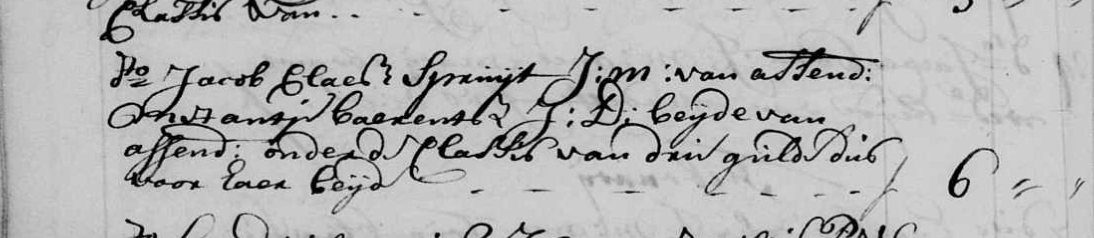 Classis van
Do Jacob Claesz Spruijt J:M: van assend:
en Trantje baerents J: D: beijde van
assend: onder d Classis van drij guld dus
voor haer beijd - - - - - - f 6 - -